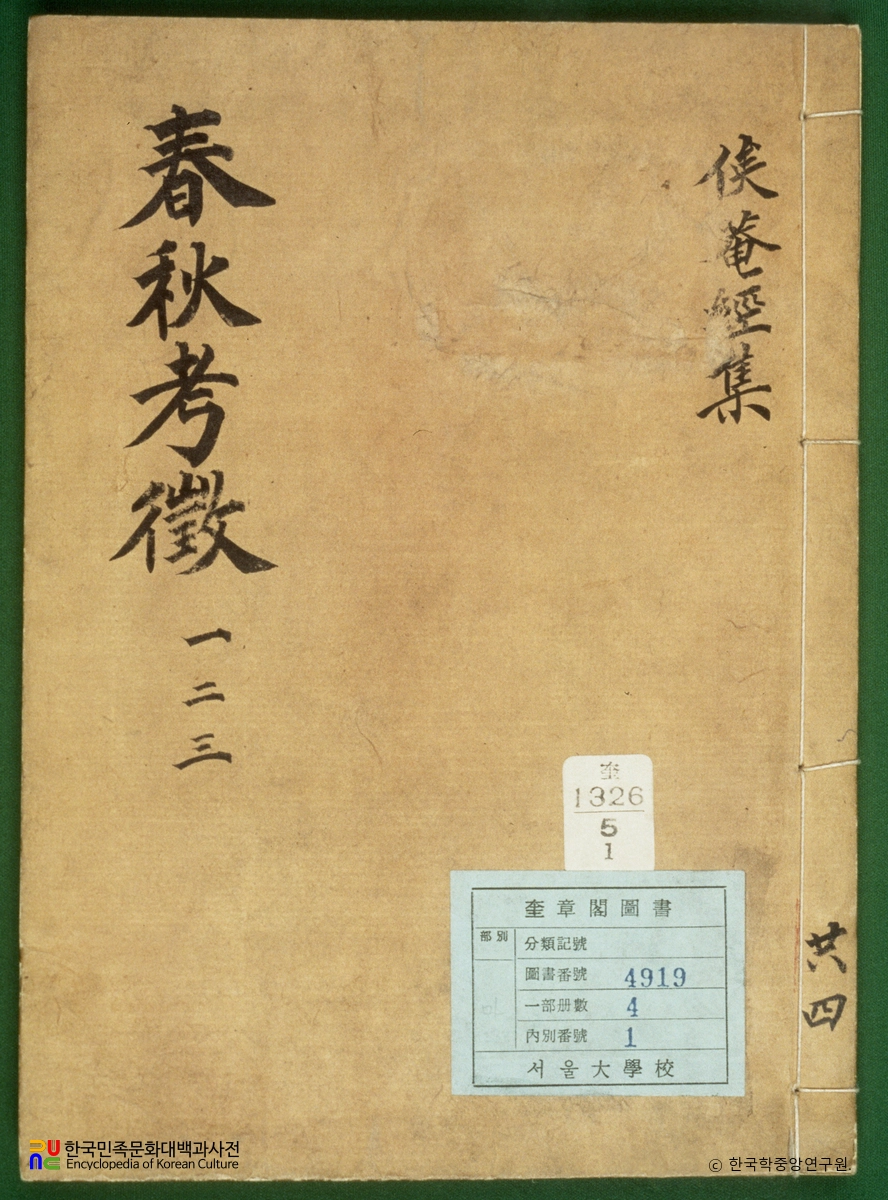 俟菴經集
春秋考徵
一二三
共四
奎
1326
5
1
奎章閣圖書
部別
分類記號
圖書番號 4919
一部册數 4
內別番號 1
서울大學校
한국민족문화대백과사전
Encyclopedia of Korean Culture
© 한국학중앙연구원.